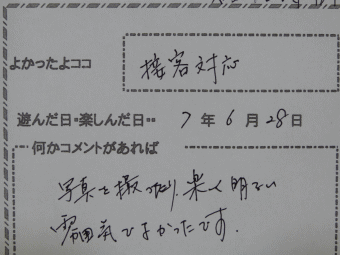 よかったよココ
接客対応
遊んだ日・楽しんだ日・・ 7年6月28日
何かコメントがあれば
写真を撮ったり、楽しく明るい
雰囲気でよかったです。